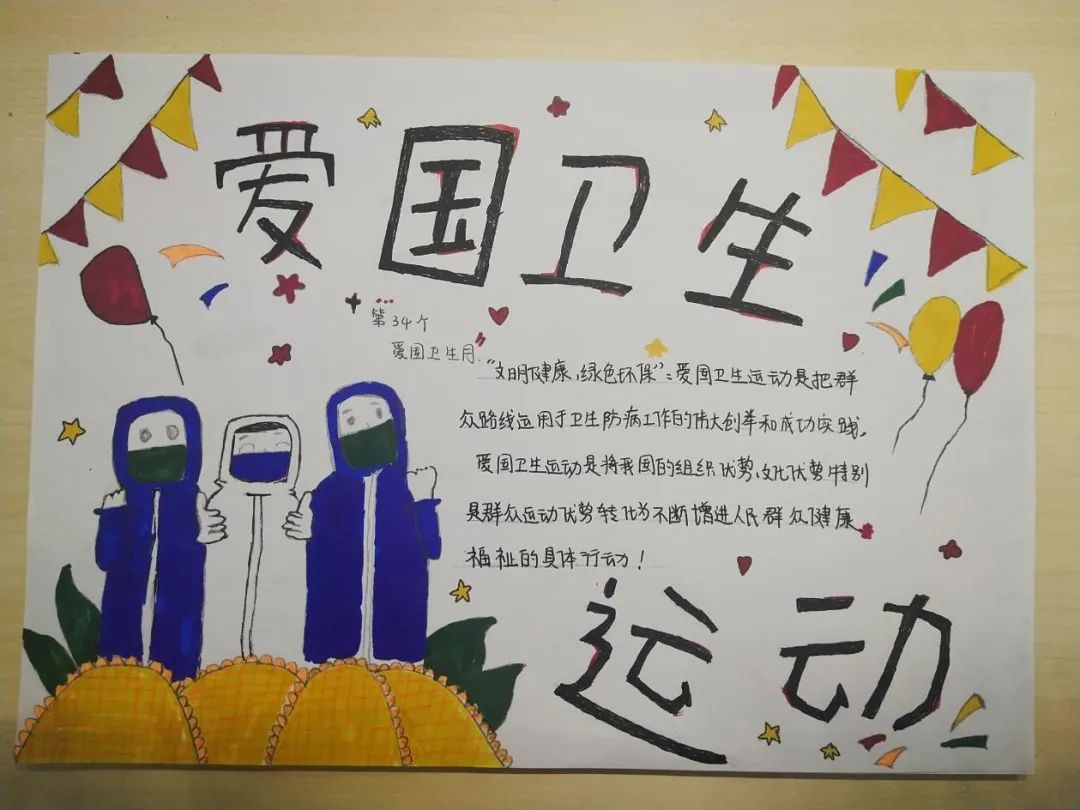 爱国卫生
第34个
爱国卫生月.
"文明健康,绿色环保":爱国卫生运动是把群
众路线运用于卫生防病工作的伟大创举和成功实践,
爱国卫生运动是将我国的组织优势、文化优势特别
具群众运动优势转化为不断增进人民群众健康
福祉的具体行动!
运动